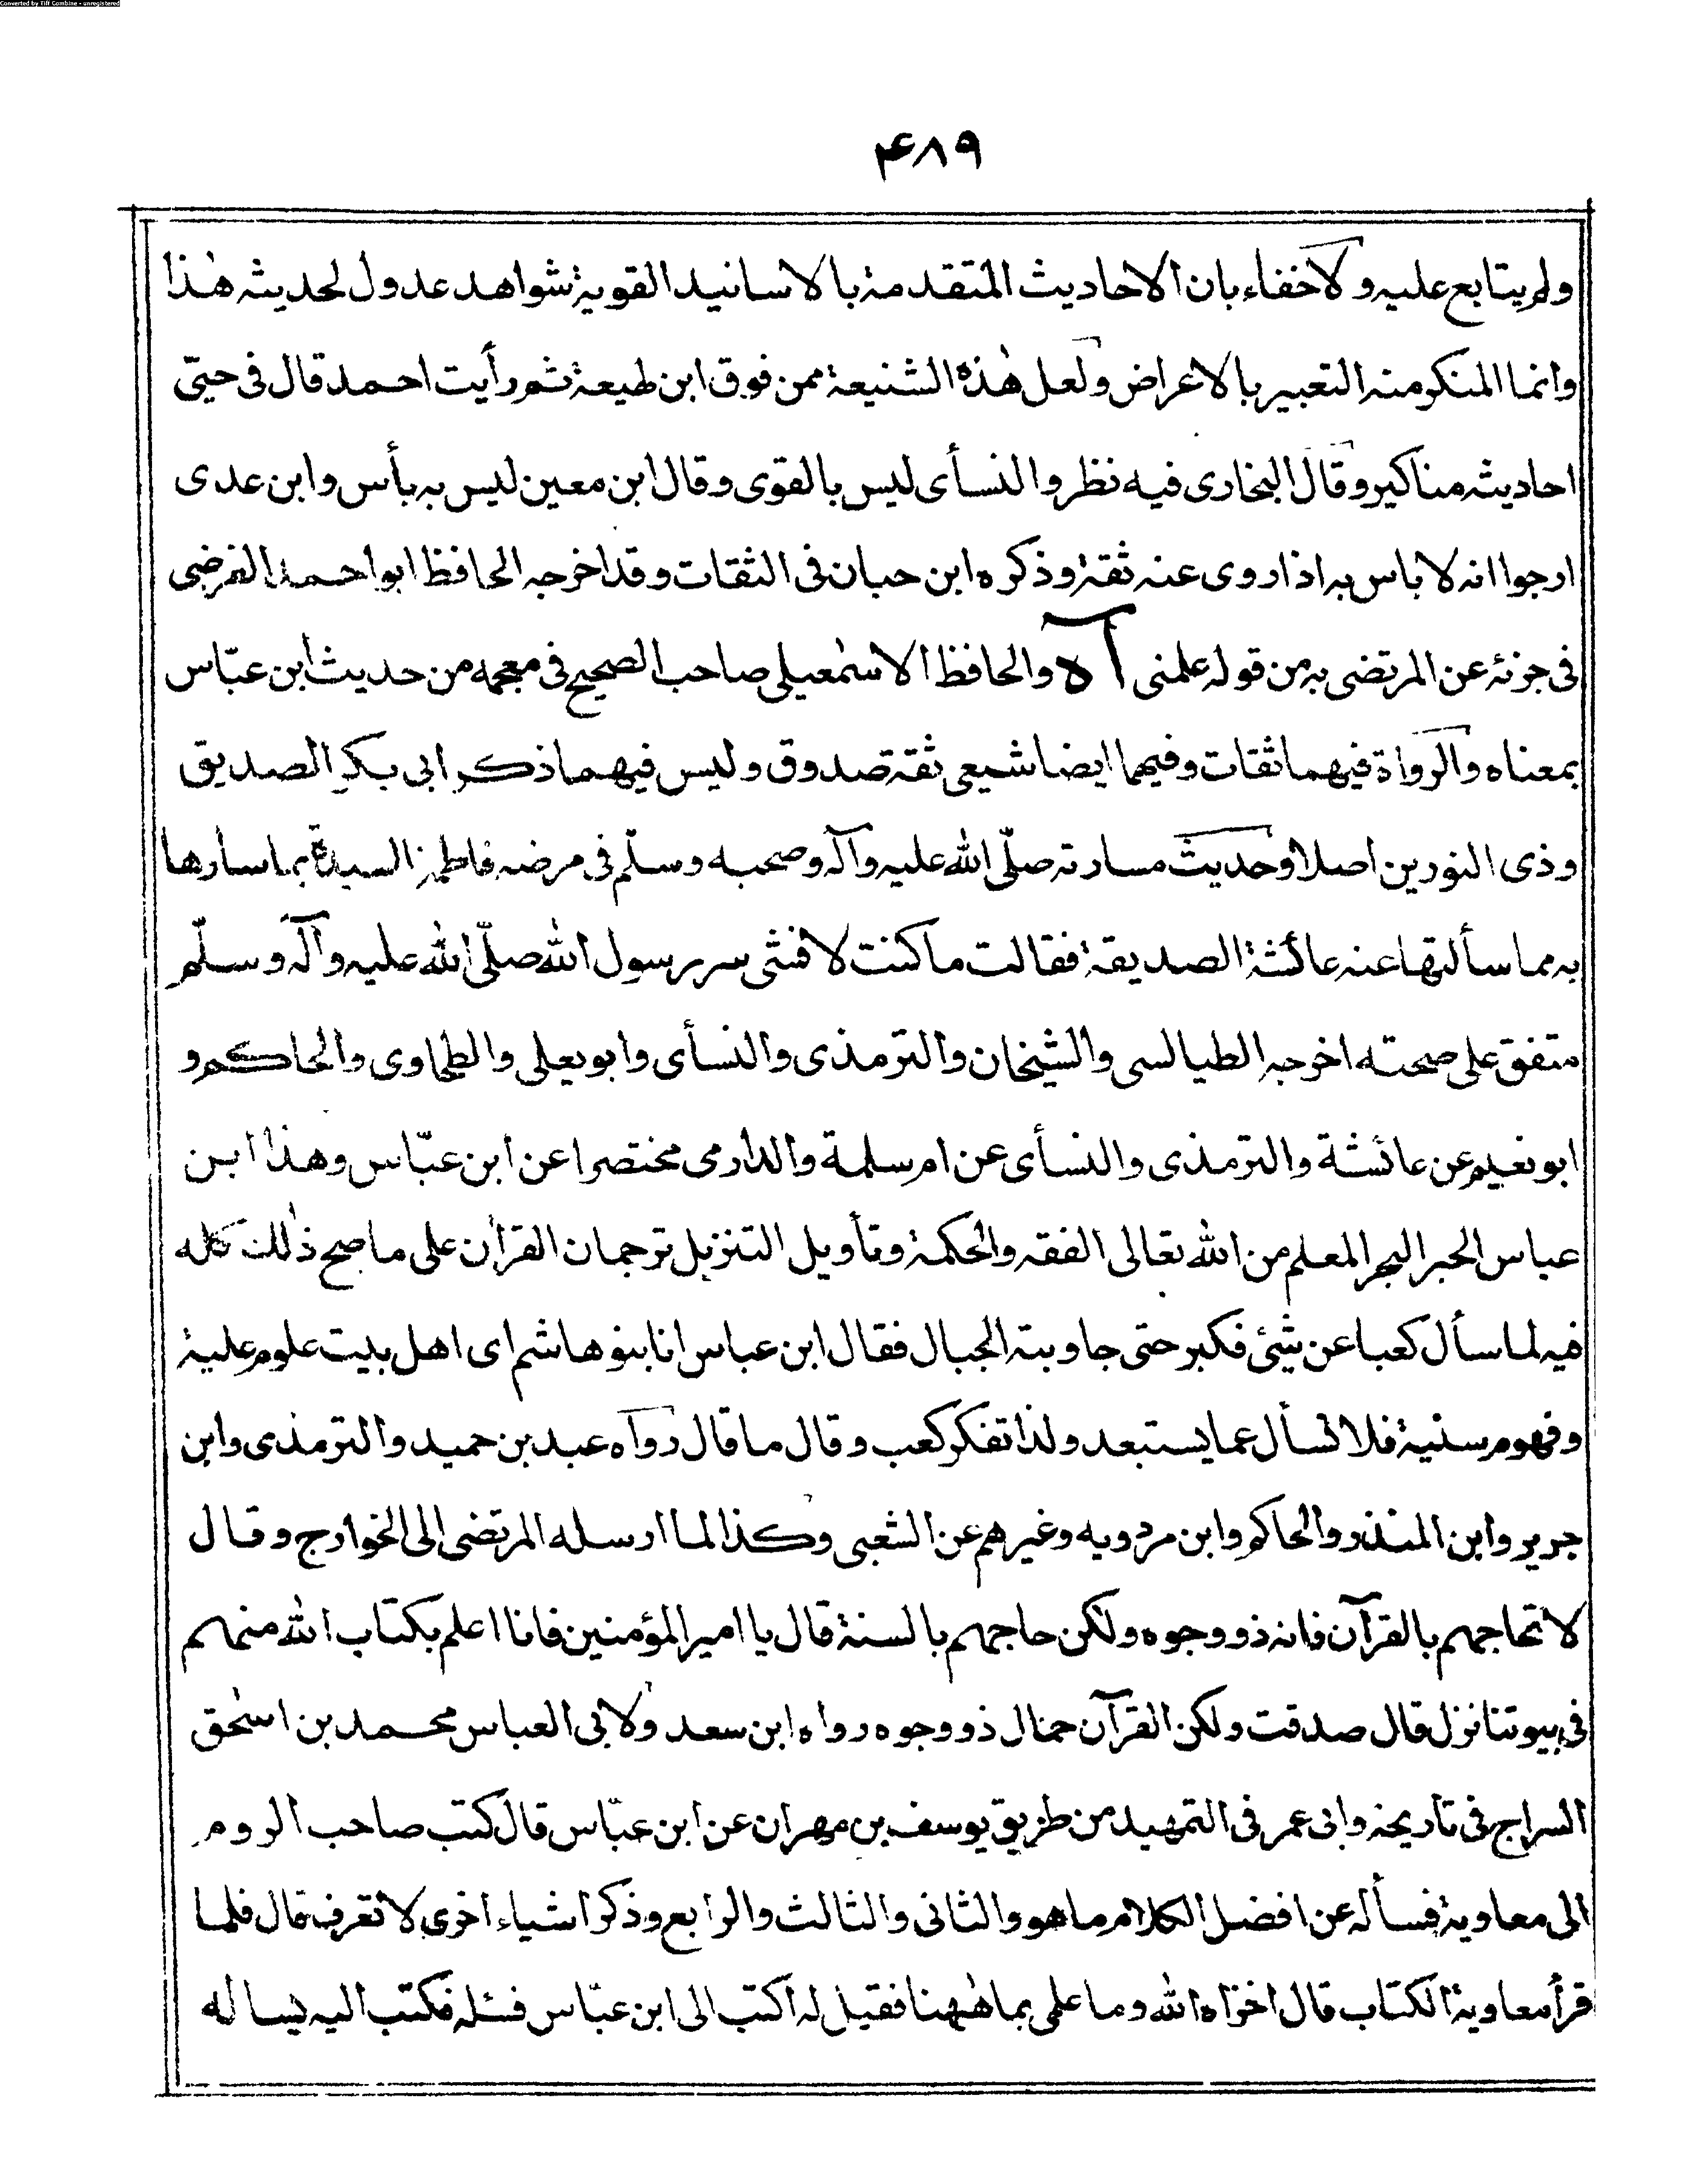 Converted by Tiff Combine - unregistered
۴۸۹
ولم يتابع عليه ولاخفاء بان الاحاديث المتقدمة بالاسانيد القوية شواهد عدول لحديثه هٰذا
وانما المنكر منه التعبير بالاعراض ولعل هٰذه الشنيعة ممن فوق ابن لهيعة ثم رأيت احمد قال فى حيّى
احاديثه مناكير وقال البخارى فيه نظر والنسأى ليس بالقوى وقال ابن معين ليس به بأس وابن عدى
ارجوا انه لا باس به اذا روى عنه ثقة وذكره ابن حبان فى الثقات وقد اخرجه الحافظ ابو احمد الفرضى
فى جزئه عن المرتضى به من قوله علمنى آه والحافظ الاسمٰعيلى صاحب الصحيح فى معجمه من حديث ابن عبّاس
بمعناه والرواة فيهما ثقات وفيهما ايضا شيعى ثقة صدوق وليس فيهما ذكر ابى بكر الصديق
وذى النورين اصلا وحديث مسارته صلّى الله عليه وآله وصحبه وسلّم فى مرضه فاطمة السيدة بما سارها
به مما سألتها عنه عائشة الصديقة فقالت ما كنت لافشى سر رسول الله صلّى الله عليه وآله وسلّم
متفق على صحته اخرجه الطيالسى والشيخان والترمذى والنسأى وابو يعلى والطحاوى والحاكم و
ابو نعيم عن عائشة والترمذى والنسأى عن ام سلمة والدارمى مختصرا عن ابن عبّاس وهذا ابن
عباس الحبر البحر المعلم من الله تعالى الفقه والحكمة وتأويل التنزيل ترجمان القرآن على ما صح ذٰلك كله
فيه لما سأل كعبا عن شئ فكبر حتى جاوبته الجبال فقال ابن عباس انا بنو هاشم اى اهل بيت علوم علية
وفهوم سنية فلا نسأل عما يستبعد ولذا تفكر كعب وقال ما قال رواه عبد بن حميد والترمذى وابن
جرير وابن المنذر والحاكم وابن مردويه وغيرهم عن الشعبى وكذا لما ارسله المرتضى الى الخوارج وقال
لا تحاجهم بالقرآن فانه ذو وجوه ولكن حاجهم بالسنة قال يا امير المؤمنين فانا اعلم بكتاب الله منهم
فى بيوتنا نزل قال صدقت ولكن القرآن حمال ذو وجوه رواه ابن سعد ولابى العباس محمد بن اسحٰق
السراج فى تاريخه وابى عمر فى التمهيد من طريق يوسف بن مهران عن ابن عبّاس قال كتب صاحب الروم
الى معاوية فسأله عن افضل الكلام ما هو والثانى والثالث والرابع وذكر اشياء اخرى لا تعرف قال فلما
قرأ معاوية الكتاب قال اخزاه الله وما علمى بما هٰهنا فقيل له اكتب الى ابن عبّاس فسئله فكتب اليه يساله